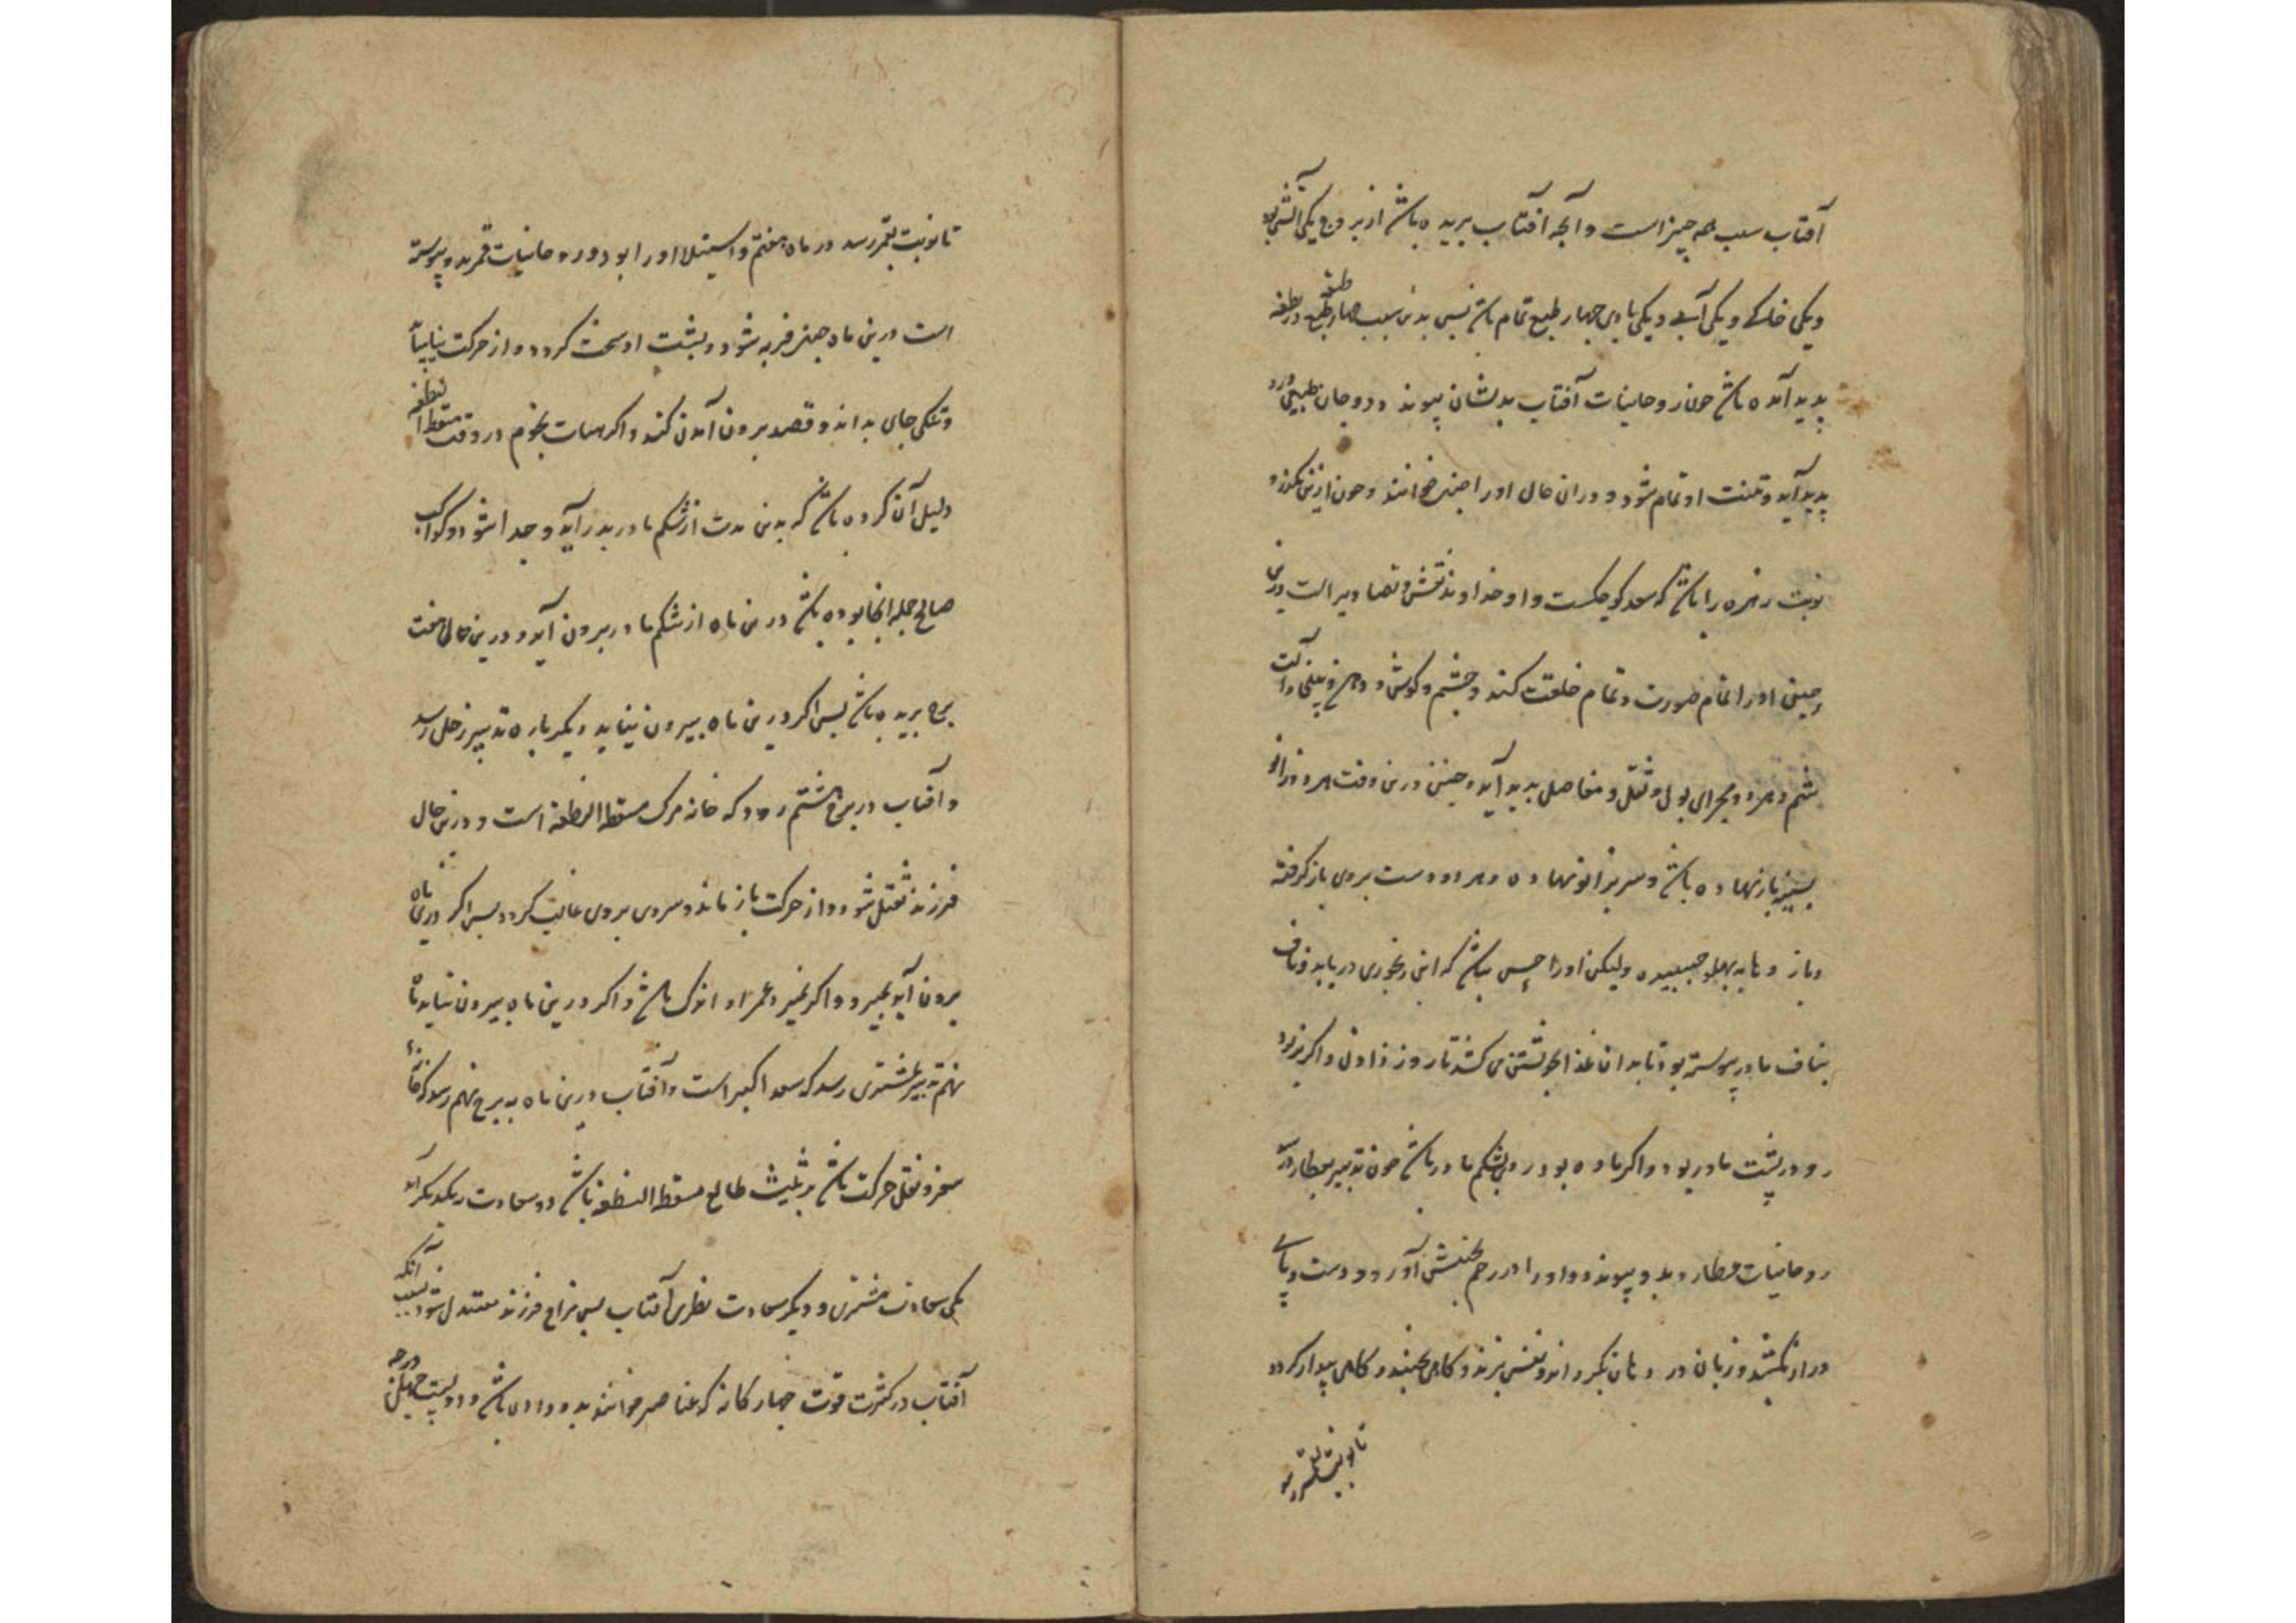 آفتاب سبب همه چیز است و آنچه آفتاب بریده باشد از بروج یکی آتشی بود
و یکی خاکی و یکی آبی و یکی بادی چهار طبع تمام باشد پس بدین سبب چهار طبع در نطفه
پدید آمده باشد چون روحانیات آفتاب بدیشان پیوند د و جان طبیعی درو
پدید آید و تنت او تمام شود و در ان حال او را جنین خوانند و چون ازین بگذرد
نوبت زهره را باشد که سعد کوچکست و او خداوند نقش و تصاویر است درین
جنین او را تمام صورت و تمام خلقت کند و چشم و کوش و دهن و بینی و آلت
شتم و زهره و مجرای بول و ثقل و مفاصل پدید آید و جنین درین وقت هر دو زانو
بسینه باز نهاده باشد و سر بزانو نهاده و هر دو دست بروی باز کرفته
و باز و ها به پهلو جسبیده ولیکن او را حس نباشد که این رنجوری دریابد و ناف
بناف مادر پیوسته بود تا بدان غذا بخویشتن می کشد تا روز زادن و اکر نر بود
رو در پشت مادر بود و اکر ماده بود روی بشکم مادر باشد چون تدبیر بعطارد رسد
روحانیات عطارد بدو پیوندد و او را در رحم بجنبش آورد و دست و پای
دراز کشد و زبان در دهان بکرداند و نفس بزند و کاهی بخسبد و کاهی بیدار کردد
تا نوبت بقمر رسد
تا نوبت بقمر رسد در ماه هفتم و استیلا او را بود و روحانیات قمر بدو پیوسته
است درین ماه جنین فربه شود و پشت او سخت کردد و از حرکت نیاساید
و تنکی جای بداند و قصد برون آمدن کند و اکر هیات نجوم در وقت مسقط النطفه
دلیل آن کرده باشد که بدین مدت از شکم مادر بدر آید و جدا شود و کواکب
صالح جمله انجا بوده باشد درین ماه از شکم مادر بیرون آید و درین حال هفت
برج بریده باشد پس اکر درین ماه بیرون نیاید دیکر باره تدبیر بزحل رسد
و آفتاب در برج هشتم رود که خانه مرک مسقط النطفه است و درین حال
فرزند ثقیل شود و از حرکت باز ماند و سردی بروی غالب کردد پس اکر درین ماه
برون آید بمیرد و اکر نمیرد عمر او اندک باشد و اکر درین ماه بیرون نیاید تا
نهم تدبیر بمشتری رسد که سعد اکبر است و آفتاب درین ماه به برج نهم رسد که خانهٔ
سفر و نقل حرکت باشد بر تثلیث طالع مسقط النطفه باشد و دو سعادت بیکدیکر آید
یکی سعادت مشتری و دیکر سعادت نظری آفتاب پس مزاج فرزند معتدل شود بسبب آنکه
آفتاب در کثرت قوت چهار کانه که عناصر خوانند بدو داده باشد و دویست چهل درجه